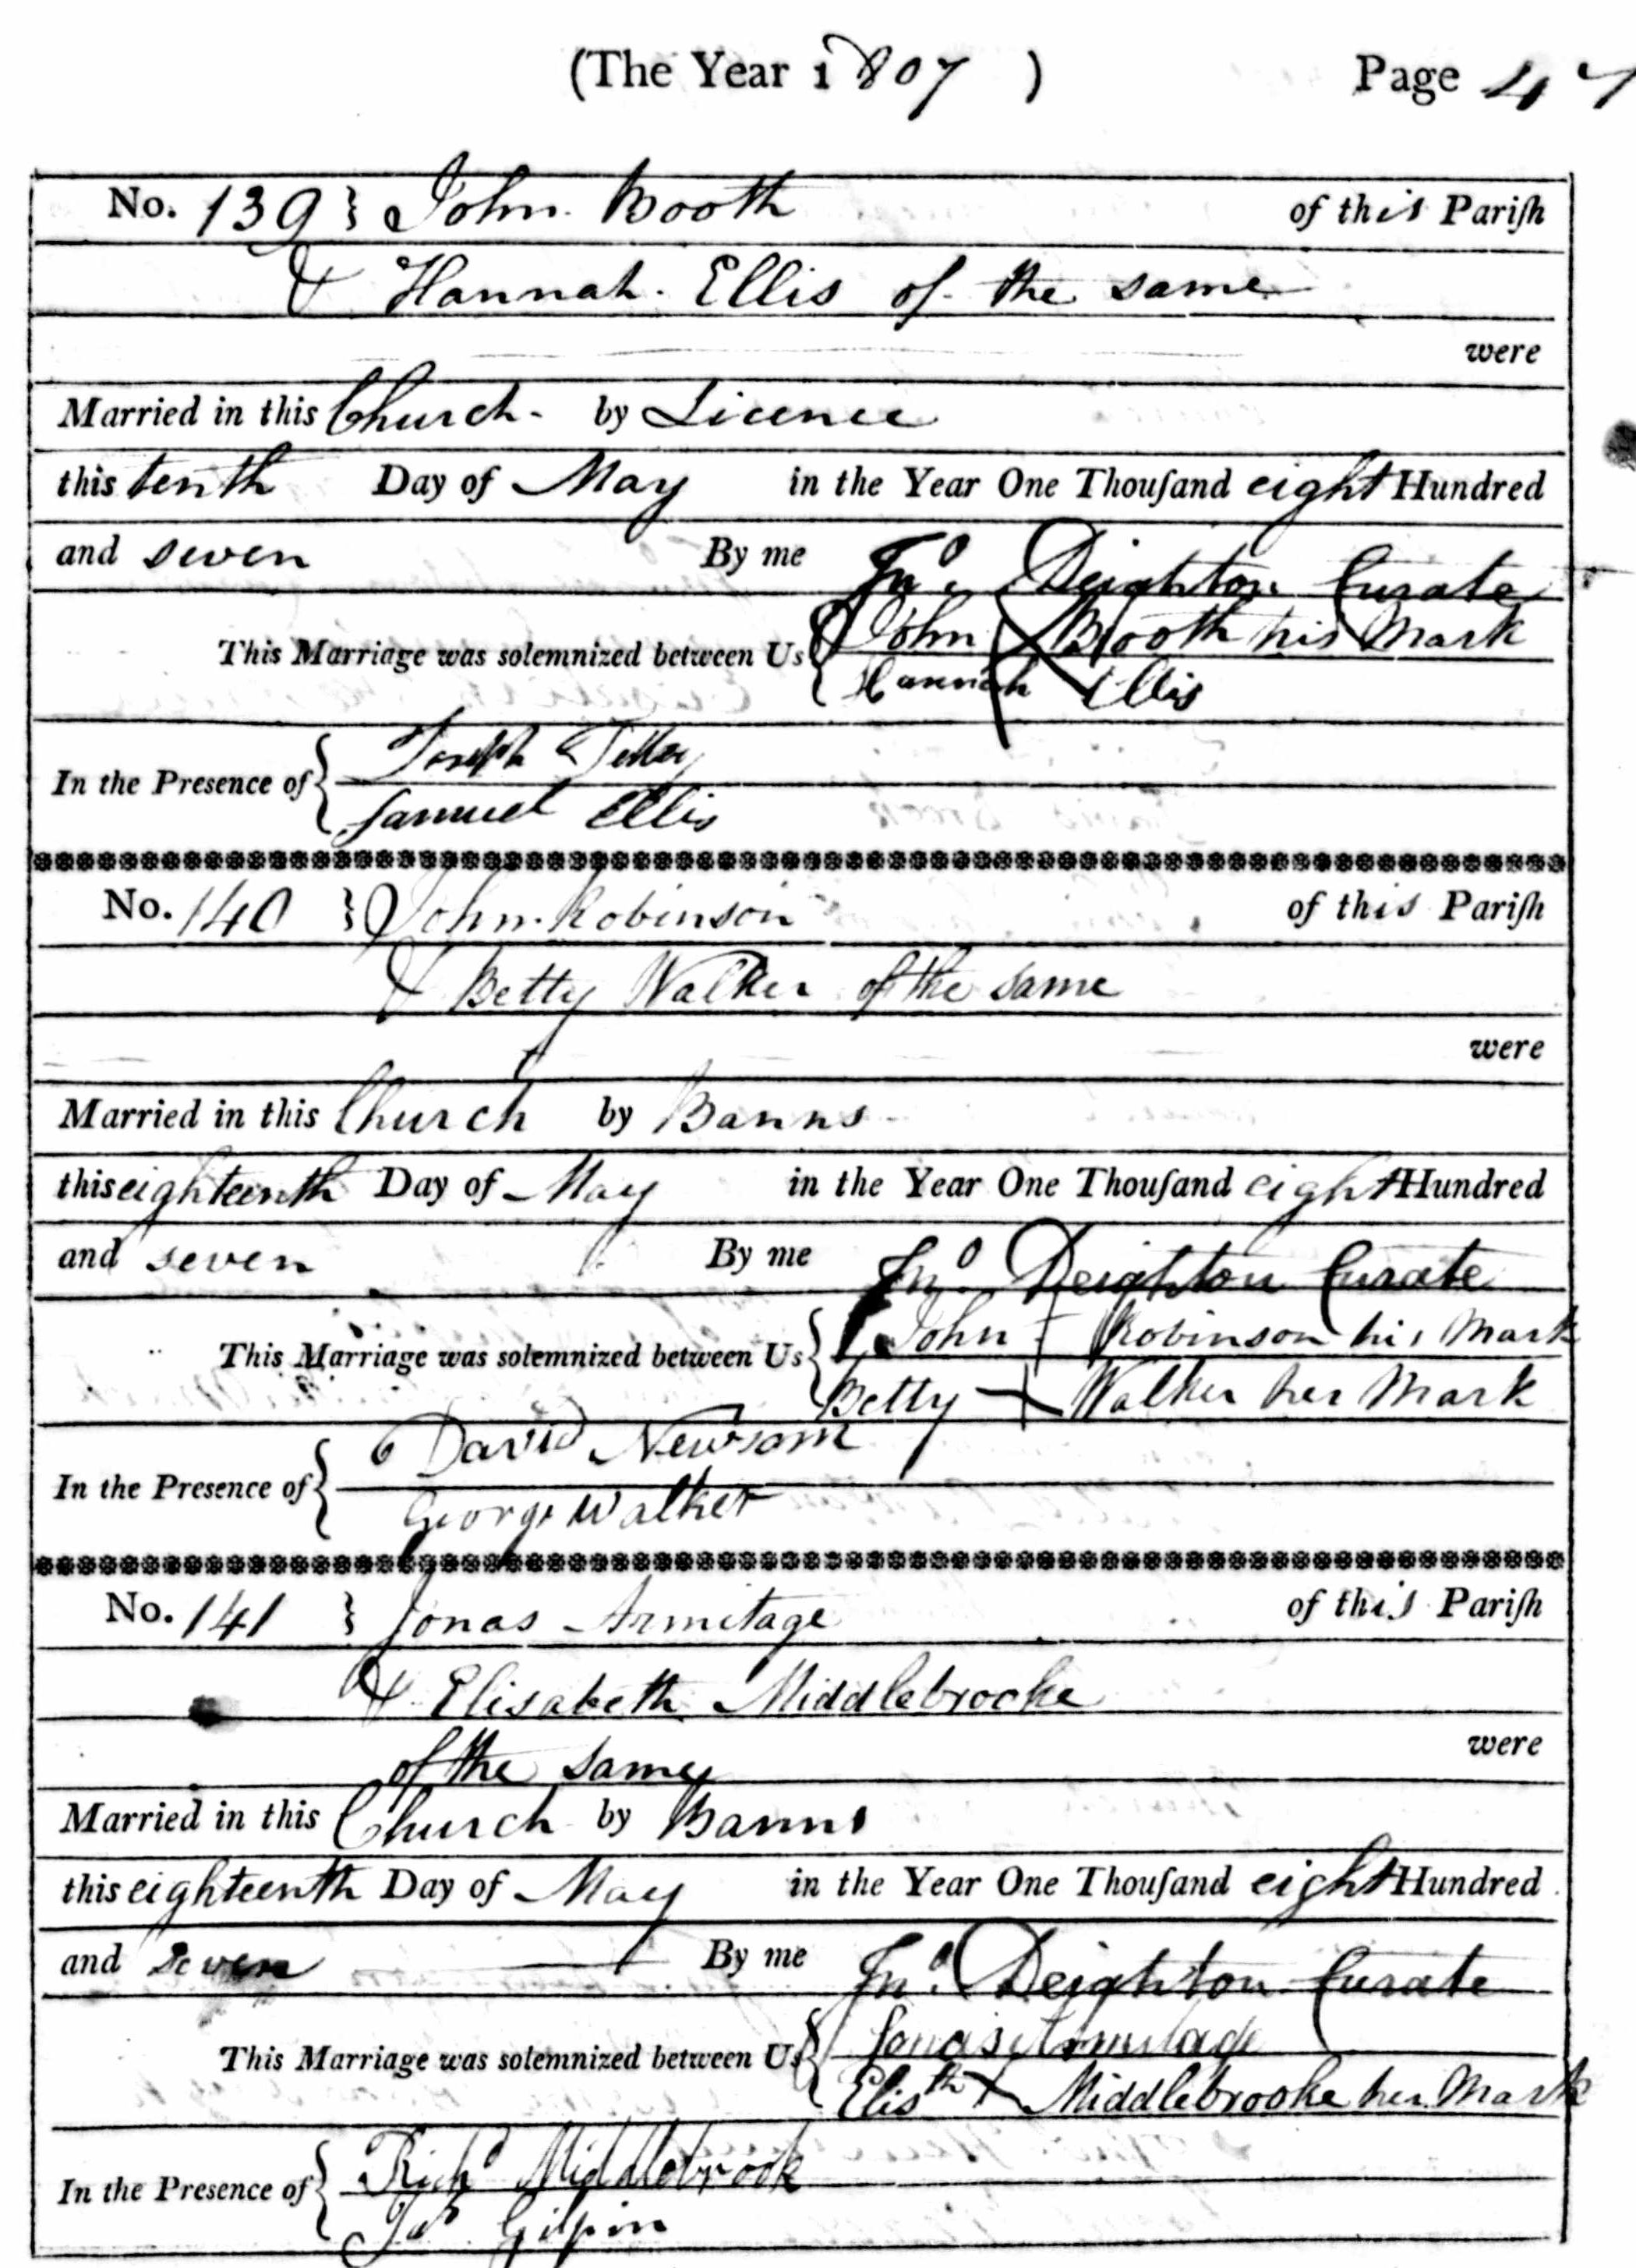 (The Year 1807 ) Page 47
No. 139 } John Booth of this Pariſh
& Hannah Ellis of the same
were
Married in this Church by Licence
this tenth Day of May in the Year One Thouſand eight Hundred
and seven By me Jno. Deighton Curate
This Marriage was solemnized between Us { John X Booth his Mark
Hannah Ellis
In the Presence of { Joseph
Samuel Ellis
No. 140 } John Robinson of this Pariſh
& Betty Walker of the same
were
Married in this Church by Banns
this eighteenth Day of May in the Year One Thouſand eight Hundred
and seven By me Jno. Deighton Curate
This Marriage was solemnized between Us { John + Robinson his Mark
Betty + Walker her Mark
In the Presence of { David Newsom
George Walker
No. 141 } Jonas Armitage of this Pariſh
& Elisabeth Middlebrooke
of the same were
Married in this Church by Banns
this eighteenth Day of May in the Year One Thouſand eight Hundred
and seven By me Jno. Deighton Curate
This Marriage was solemnized between Us { Jonas Armitage
Elisth X Middlebrooke her Mark
In the Presence of { Richd Middlebrook
Gilpin